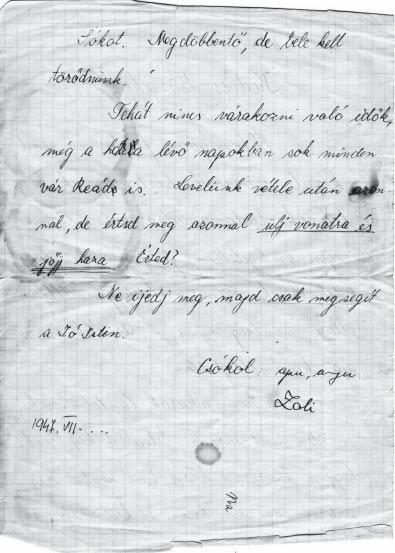 Sókat. Megdöbbentő, de bele kell
törődnünk.
Tehát nincs várakozni való idők,
még a hátra lévő napokban sok minden
vár Reád is. Levelünk vétele után azon-
nal, de értsd meg azonnal ülj vonatra és
jöjj haza Érted?
Ne ijedj meg, majd csak megsegít
a Jó Isten.
Csókol: apu, anyu
Zoli
1947. VII. ...